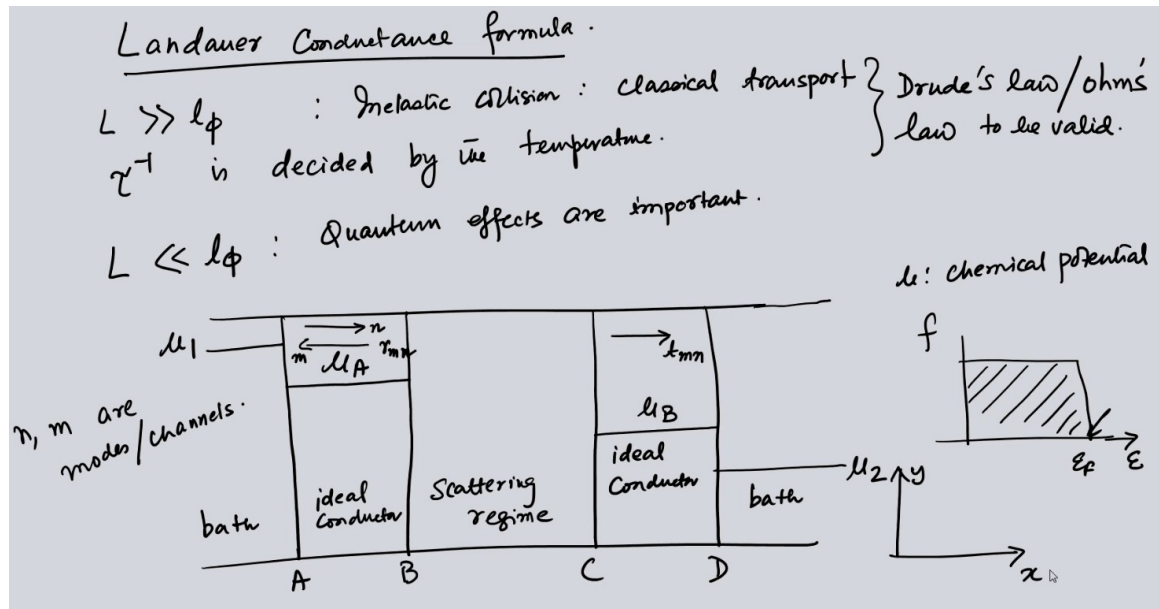 Landauer Conductance formula.
L >> lϕ : Inelastic collision : classical transport } Drude's law/ohm's
τ⁻¹ is decided by the temperature. law to be valid.
L << lϕ : Quantum effects are important.
μ: chemical potential
μ1
n
m
r_mn
μA
t_mn
μB
f
εF
ε
n, m are
modes/channels.
bath
ideal
conductor
Scattering
regime
ideal
Conductor
bath
μ2
y
x
A B C D